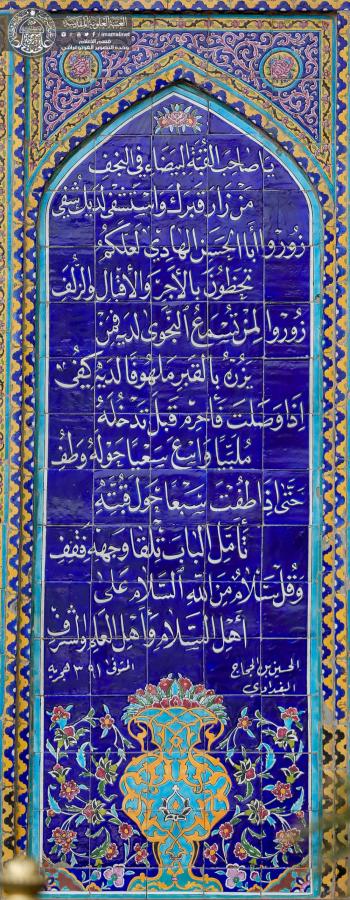 العتبة العلوية المقدسة
f / imamalinet
قسم الإعلام
وحدة التصوير الفوتوغرافي
يا صاحب القبة البيضاء في النجف
من زار قبرك واستشفى لديك شفي
زوروا أبا الحسن الهادي لعلكم
تحظون بالأجر والإقبال والزلف
زوروا لمن تسمع النجوى لديه فمن
يزره بالقبر ملهوفا لديه كفي
إذا وصلت فأحرم قبل تدخله
ملبيا واسع سعيا حوله وطف
حتى إذا طفت سبعا حول قبته
تأمل الباب تلقا وجهه فقف
وقل سلام من الله السلام على
أهل السلام وأهل العلم والشرف
الحسين بن الحجاج
البغدادي
المتوفى ٣٩١ هجرية